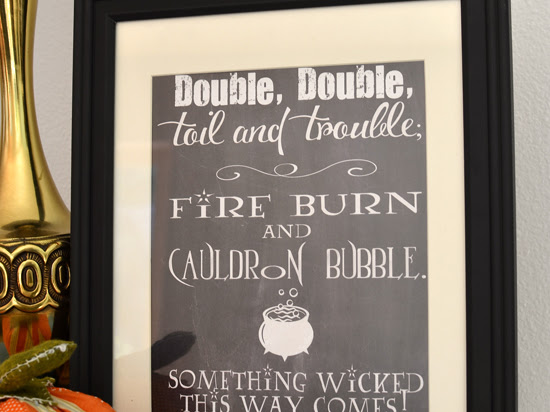 Double, Double,
toil and trouble;
FIRE BURN
AND
CAULDRON BUBBLE.
SOMETHING WICKED
THIS WAY COMES!